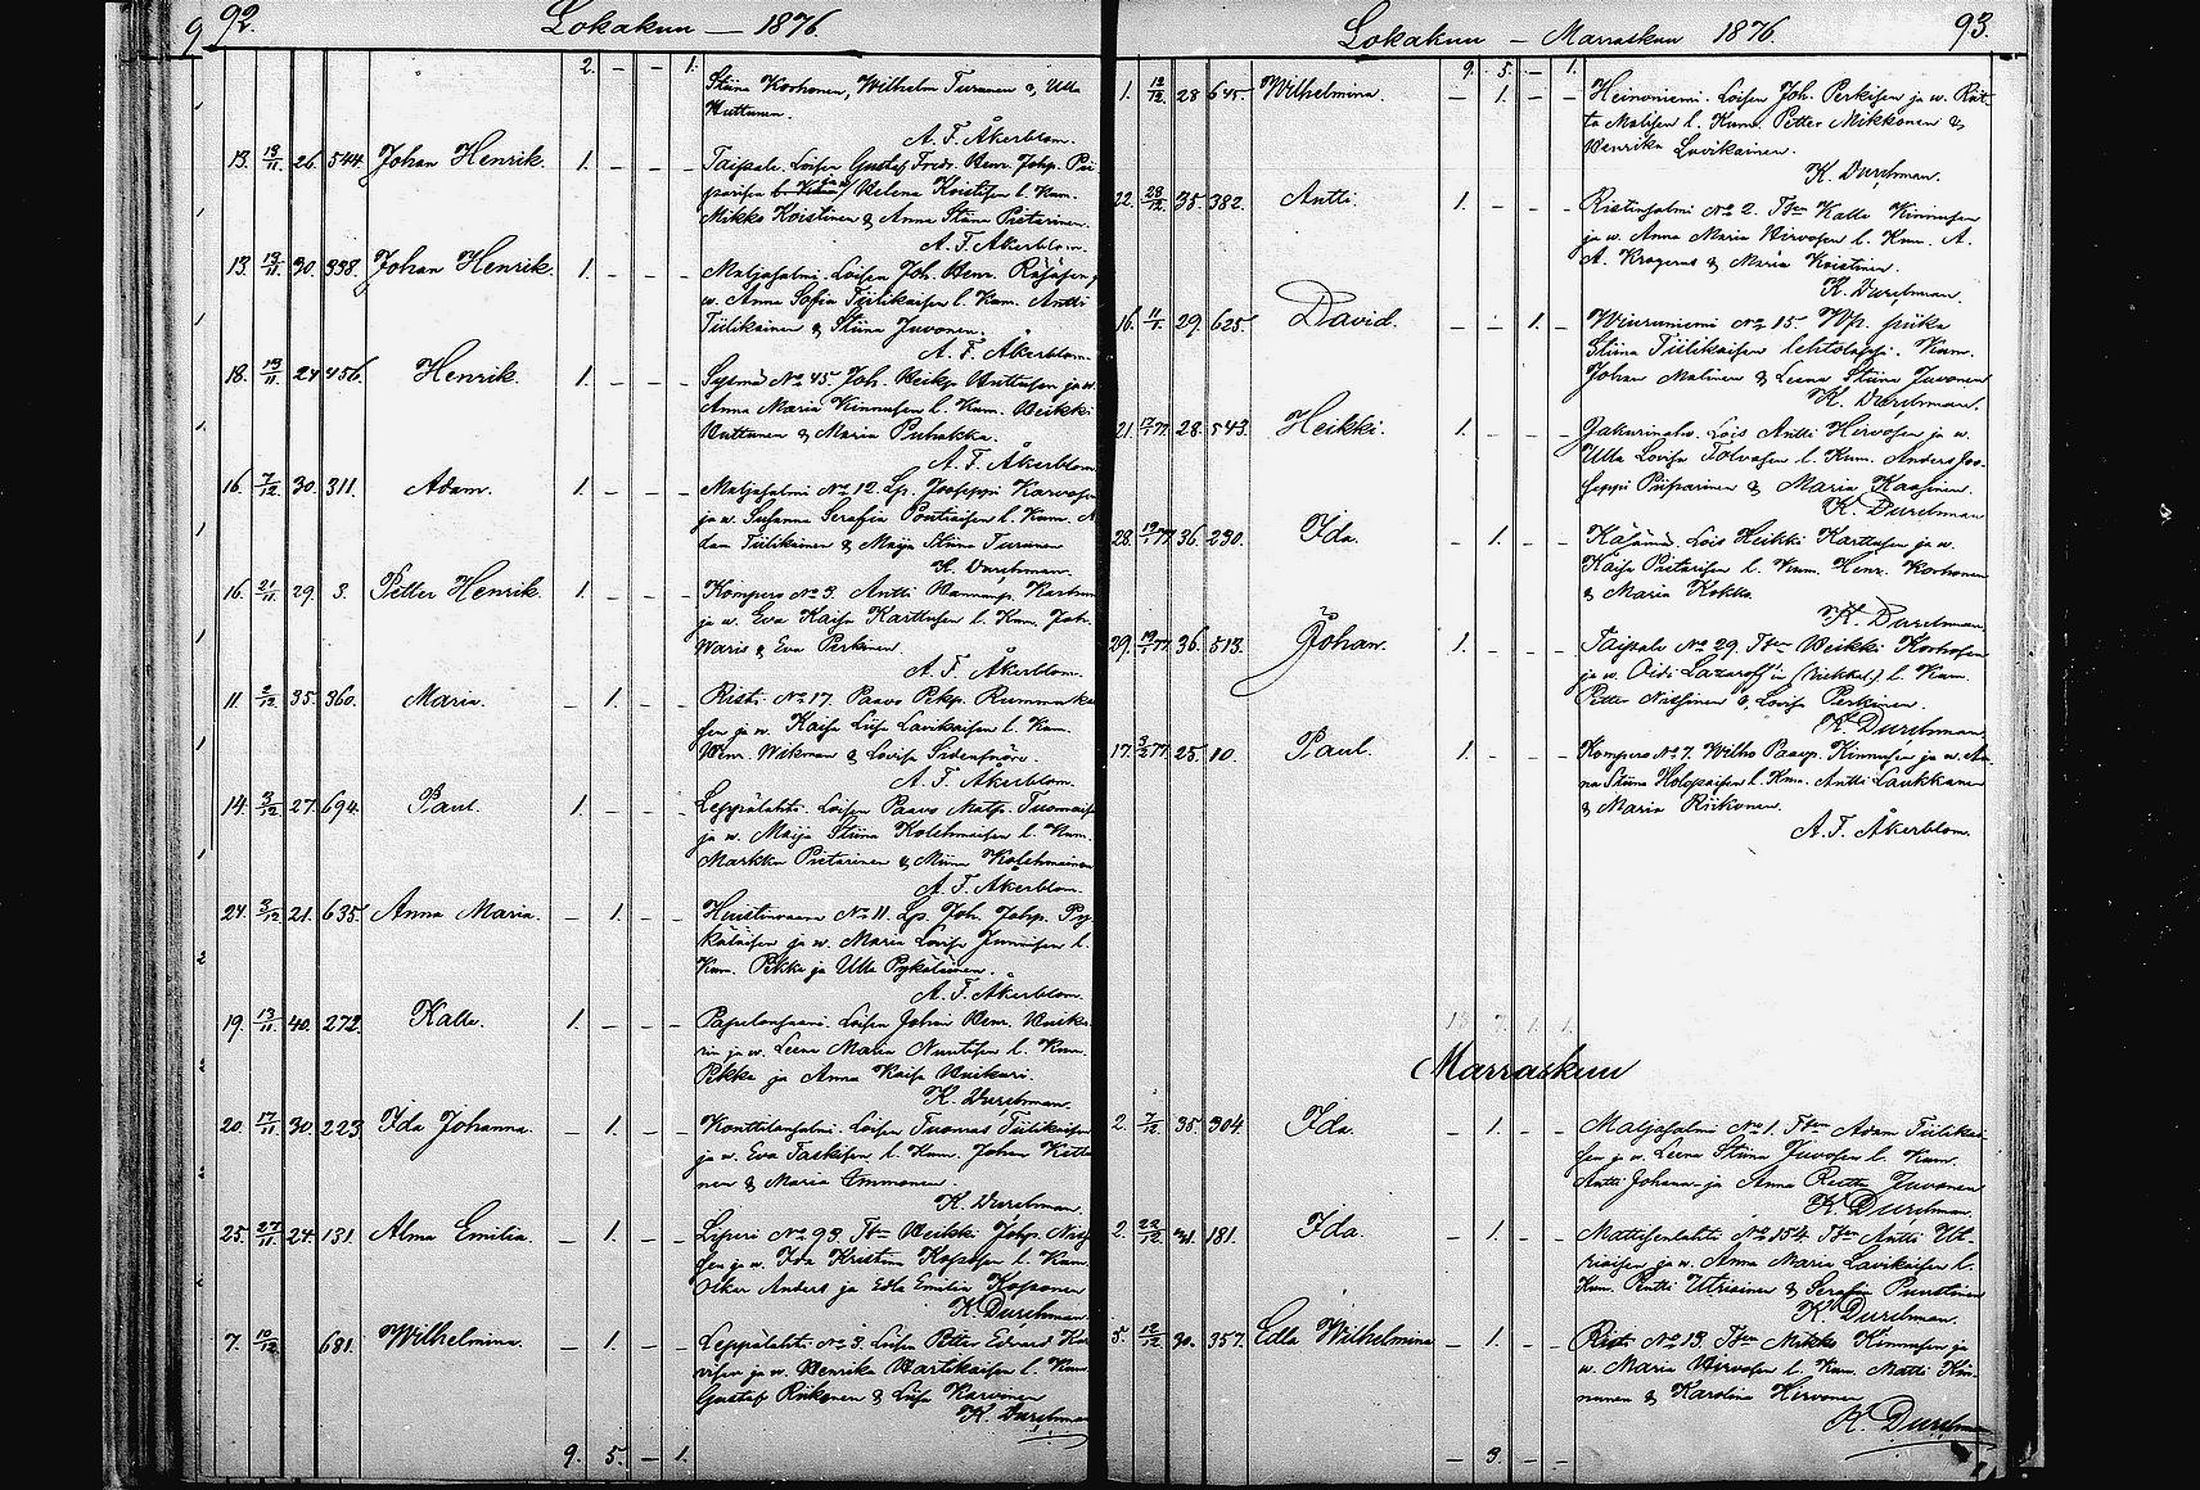 92. Lokakuu — 1876.
2. – – 1.
Stiina Korhonen, Wilhelm Turunen &, Ulla
Huttunen.
A. F. Åkerblom.
13. 19/11. 26. 544. Johan Henrik. 1. – – – Taipale. Loisen Gustaf Fredr. Henr. Johp. Pii
parisen ja w. Helena Koistisen l. Kum.
Mikko Koistinen & Anna Stiina Pietarinen.
A. F. Åkerblom.
13. 19/11. 30. 338. Johan Henrik. 1. – – – Maljasalmi. Loisen Joh. Henr. Räsäsen j
w. Anna Sofia Tiilikaisen l. Kum. Antti
Tiilikainen & Stiina Juvonen.
A. F. Åkerblom.
18. 19/11. 24 456. Henrik. 1. – – – Sysmä No 45. Joh. Heikp. Huttusen ja w.
Anna Maria Kinnusen l. Kum. Heikki
Huttunen & Maria Puhakka.
A. F. Åkerblom.
16. 7/12. 30. 311. Adam. 1. – – – Maljasalmi No 12. Lp. Jooseppi Karvosen
ja w. Susanna Serafia Pontiaisen l. Kum. A
dam Tiilikainen & Maija Stiina Turunen
K. Durchman.
16. 21/11. 29. 3. Petter Henrik. 1. – – – Kompero No 3. Antti Hannunp. Karhun
ja w. Eva Kaisa Karttusen l. Kum. Joh.
Waris & Eva Perkinen.
A. F. Åkerblom.
11. 2/12. 35. 360. Maria. – 1. – – Risti No 17. Paavo Pekp. Rummuka
sen ja w. Kaisa Liisa Lavikaisen l. Kum.
Henr. Wakman & Lovisa Sidensnöre.
A. F. Åkerblom.
14. 3/12. 27. 694. Paul. 1. – – – Leppälahti. Loisen Paavo Matp. Tuomais
ja w. Maija Stiina Kolehmaisen l. Kum.
Markku Pietarinen & Miina Kolehmainen
A. F. Åkerblom.
24. 3/12. 21. 635. Anna Maria. – 1. – – No 11. Lp. Joh. Johp. Py
käläisen ja w. Maria Lovisa l.
Kum. Pekka ja Ulla Pykäläinen.
A. F. Åkerblom.
19. 13/11. 40. 272. Kalle. 1. – – – Papelonsaari. Loisen Johan Henr. Huiku
rin ja w. Leena Maria Nuutisen l. Kum.
Pekka ja Anna Kaisa Huikuri.
K. Durchman.
20. 17/11. 30. 223 Ida Johanna. – 1. – – Konttilansalmi. Loisen Tuomas Tiilikaisen
ja w. Eva Taskisen l. Kum. Johan Ketto
nen & Maria Immonen.
K. Durchman.
25. 27/11. 24. 131. Alma Emilia. – 1. – – Liperi No 93. Heikki Johp.
sen ja w. Ida Kristina Koposen l. Kum.
Oskar Anders ja Edla Emilia Koponen
K. Durchman.
7. 10/12 681. Wilhelmina. – 1. – – Leppälahti No 3. Loisen Petter Edvard Kar
visen ja w. Henrika Hartikaisen l. Kum.
Gustaf Riikonen & Liisa Karvinen
K. Durchman
9. 5. – 1.
Lokakuu – Marraskuu 1876. 93.
9. 5. – 1.
1. 12/12. 28 645. Wilhelmina. – 1. – – Heinoniemi. Loisen Joh. Perkisen ja w. Riit
ta Malisen l. Kum. Petter Mikkonen &
Henrika Lavikainen.
K. Durchman.
22. 28/12. 35. 382. Antti. 1. – – – Ristinsalmi No 2. Kalle Kinnusen
ja w. Anna Maria Hirvosen l. Kum. A.
A. Krogerus & Maria Koistinen.
K. Durchman.
16. 11/1. 29. 625. David. – – 1. – Wiuruniemi No 15. Wp. piika
Stiina Tiilikaisen lehtolapsi. Kum.
Johan Malinen & Leena Stiina Juvonen
K. Durchman.
21. 77. 28. 543. Heikki. 1. – – – Lois Antti Hirvosen ja w.
Ulla Lovisa Tolvasen l. Kum. Anders Joo-
seppi Piiparinen & Maria Kaasinen.
K. Durchman
28. 19/1 77. 36. 230. Ida. – 1. – – Käsämä. Lois Heikki Karttusen ja w.
Kaisa Pietarisen l. Kum. Henr. Korhonen
& Maria Kokko.
K. Durchman.
29. 19/1 77. 36. 513. Johan. 1. – – – Taipale No 29. Heikki Korhosen
ja w. Lazaroff'in l. Kum.
Petter Nissinen &, Lovisa Perkinen.
K. Durchman.
17. 3/2 77. 25. 10. Paul. 1. – – – Kompero No 7. Wilho Paavp. Kinnusen ja w. An-
na Stiina Holopaisen l. Kum. Antti Laukkanen
& Maria Riikonen.
A. F. Åkerblom.
13. 7. 1. 1.
Marraskuu
2. 7/12. 35. 304. Ida. – 1. – – Maljasalmi No 1. Adam Tiilikai-
sen ja w. Leena Stiina Juvosen l. Kum.
Antti Johana- ja Anna Reetta Juvonen
K. Durchman.
2. 22/12. 31. 181. Ida. – 1. – – Mattisenlahti No 154. Antti Ut-
riaisen ja w. Anna Maria Lavikaisen l.
Kum. Pentti Utriainen & Serafia Puustinen
K. Durchman.
5. 12/12. 30. 357. Edla Wilhelmina – 1. – – Risti No 13. Mikko Kinnusen ja
w. Maria Hirvosen l. Kum. Matti Kin-
nunen & Karolina Hirvonen
K. Durchman
– 3. – –